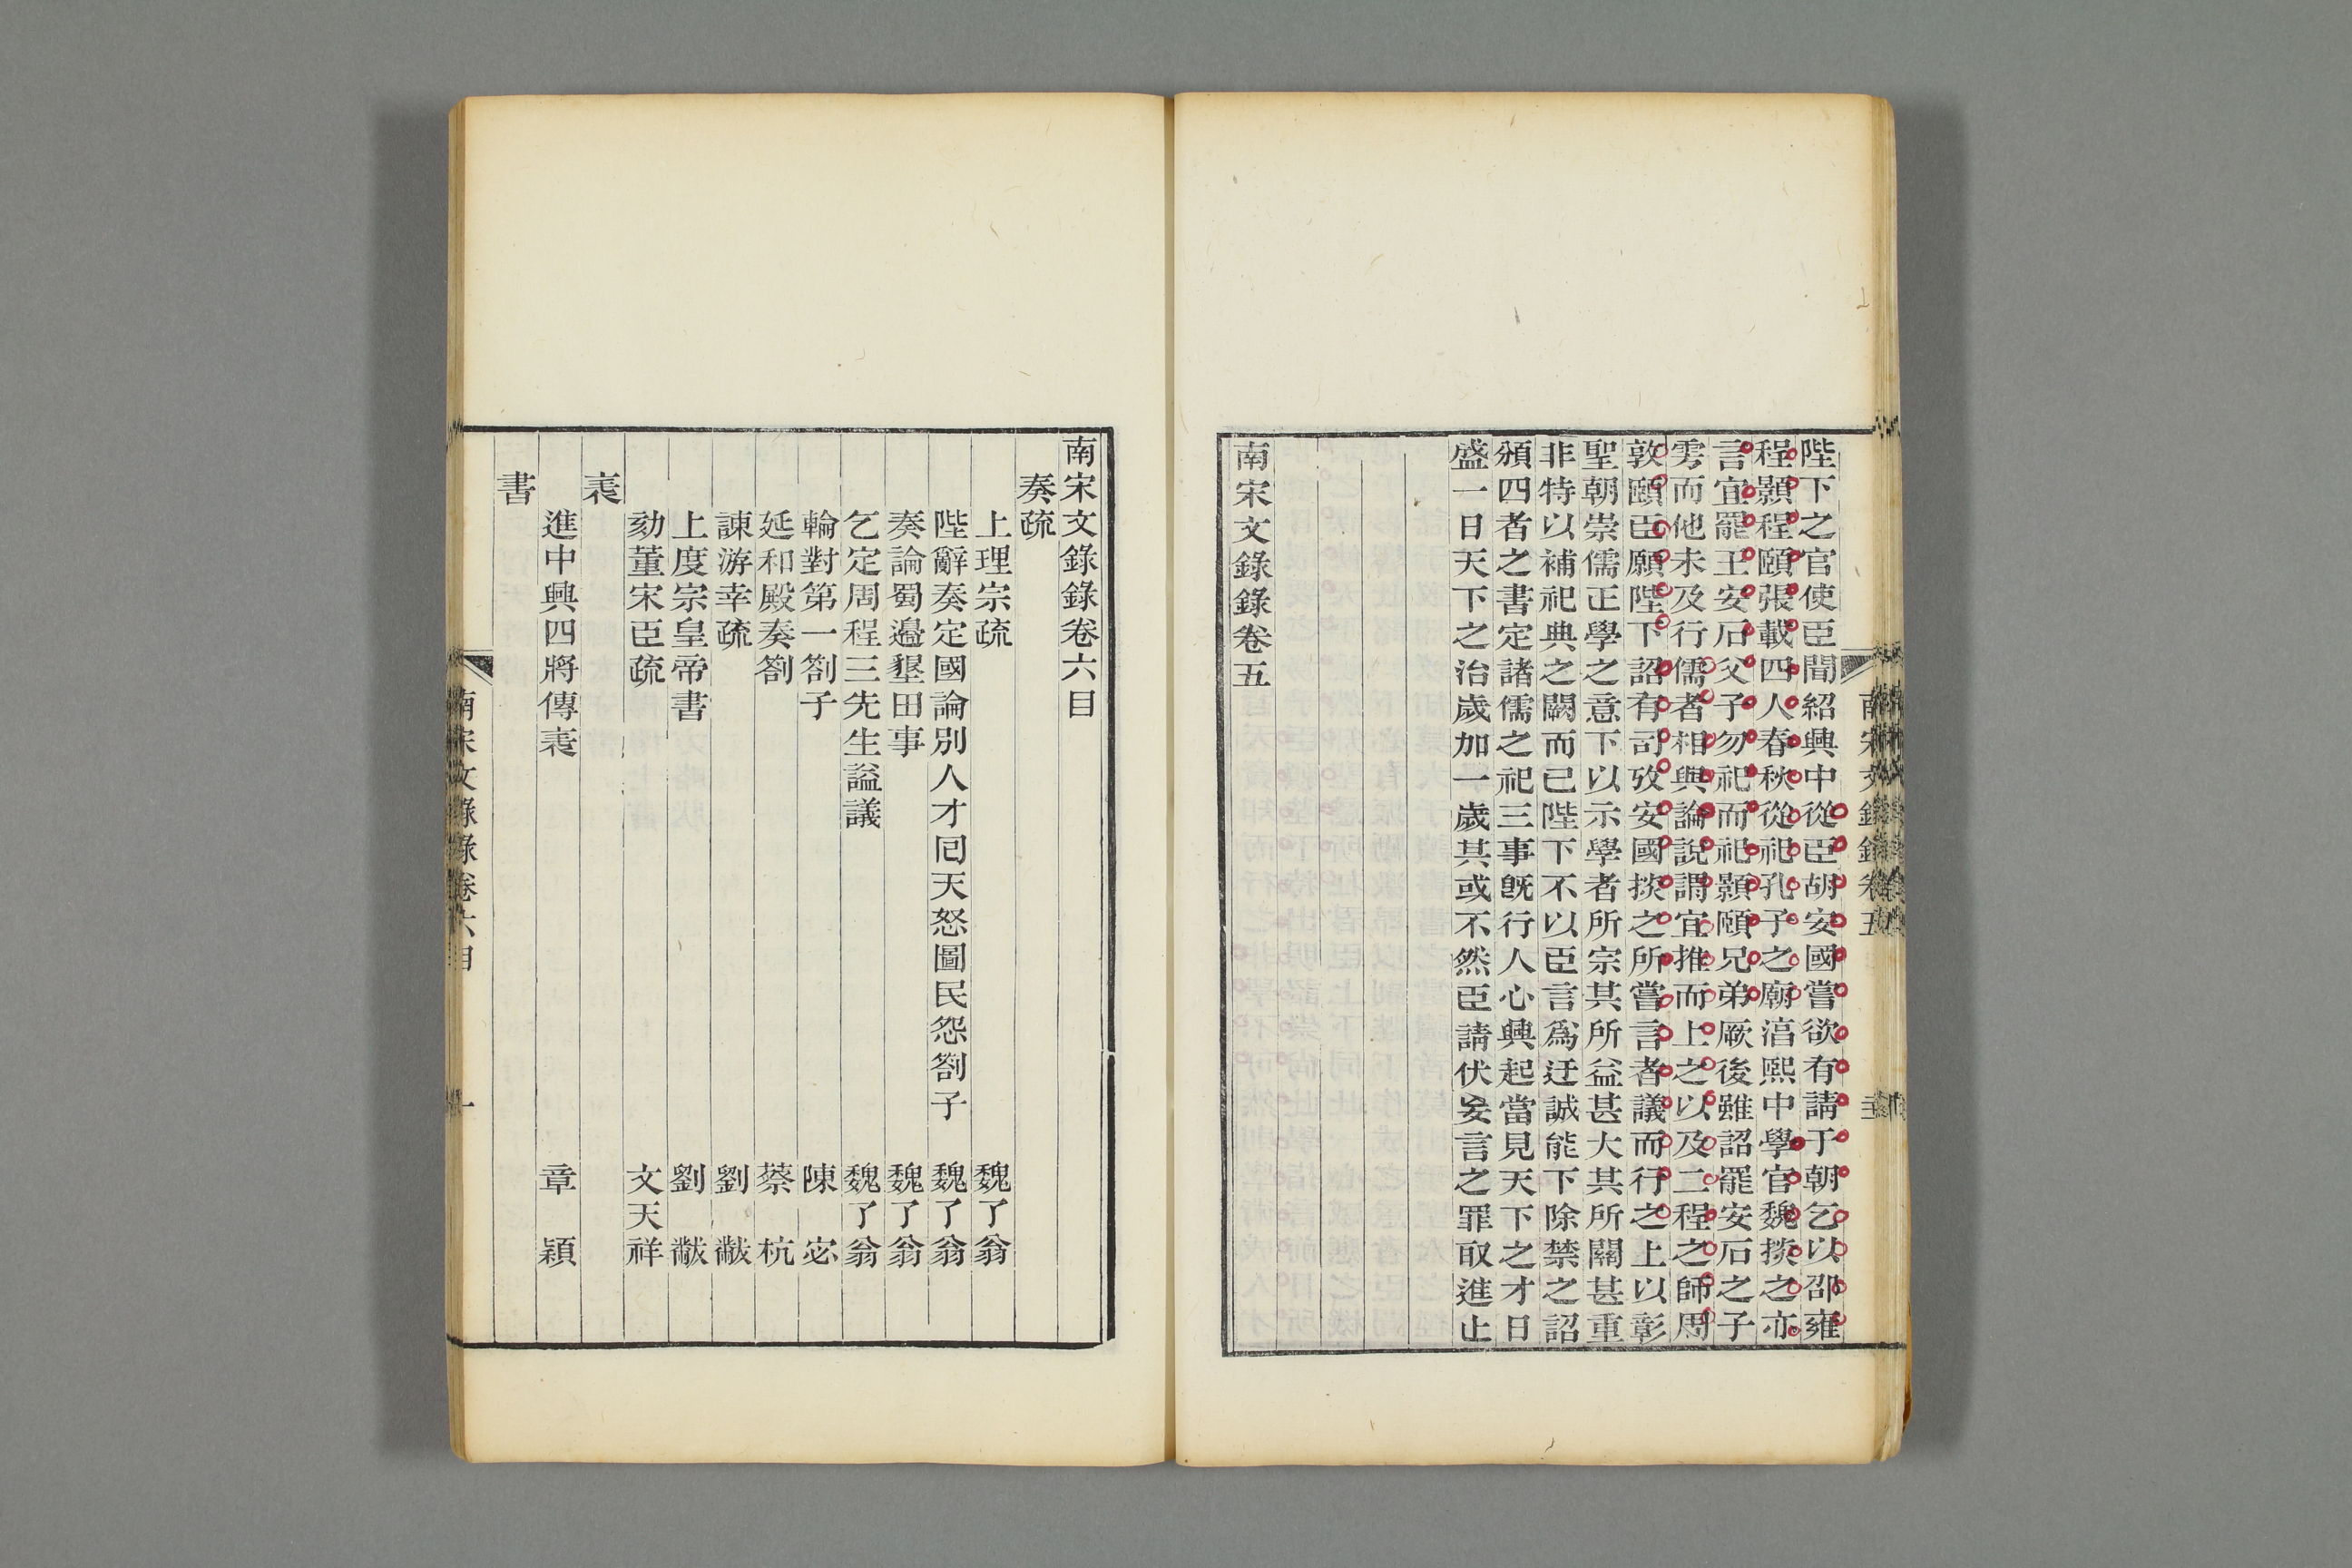 陛下之官使臣聞紹興中從臣胡安國嘗欲有請于朝乞以邵雍
程顥程頤張載四人春秋從祀孔子之廟湻熙中學官魏掞之亦
言宜罷王安石父子勿祀而祀顥頤兄弟厥後雖詔罷安石之子
雱而他未及行儒者相與論說謂宜推而上之以及二程之師周
敦頤臣願陛下詔有司攷安國掞之所嘗言者議而行之上以彰
聖朝崇儒正學之意下以示學者所宗其所益甚大其所關甚重
非特以補祀典之闕而已陛下不以臣言爲迂誠能下除禁之詔
頒四者之書定諸儒之祀三事旣行人心興起當見天下之才日
盛一日天下之治歲加一歲其或不然臣請伏妄言之罪取進止
南宋文錄錄卷五
南宋文錄錄卷六目
奏疏
上理宗疏 魏了翁
陛辭奏定國論別人才囘天怒圖民怨劄子 魏了翁
奏論蜀邊墾田事 魏了翁
乞定周程三先生謚議 魏了翁
輪對第一劄子 陳宓
延和殿奏劄 蔡杭
諫游幸疏 劉黻
上度宗皇帝書 劉黻
劾董宋臣疏 文天祥
表
進中興四將傳表 章穎
書
南宋文錄錄卷六目 一